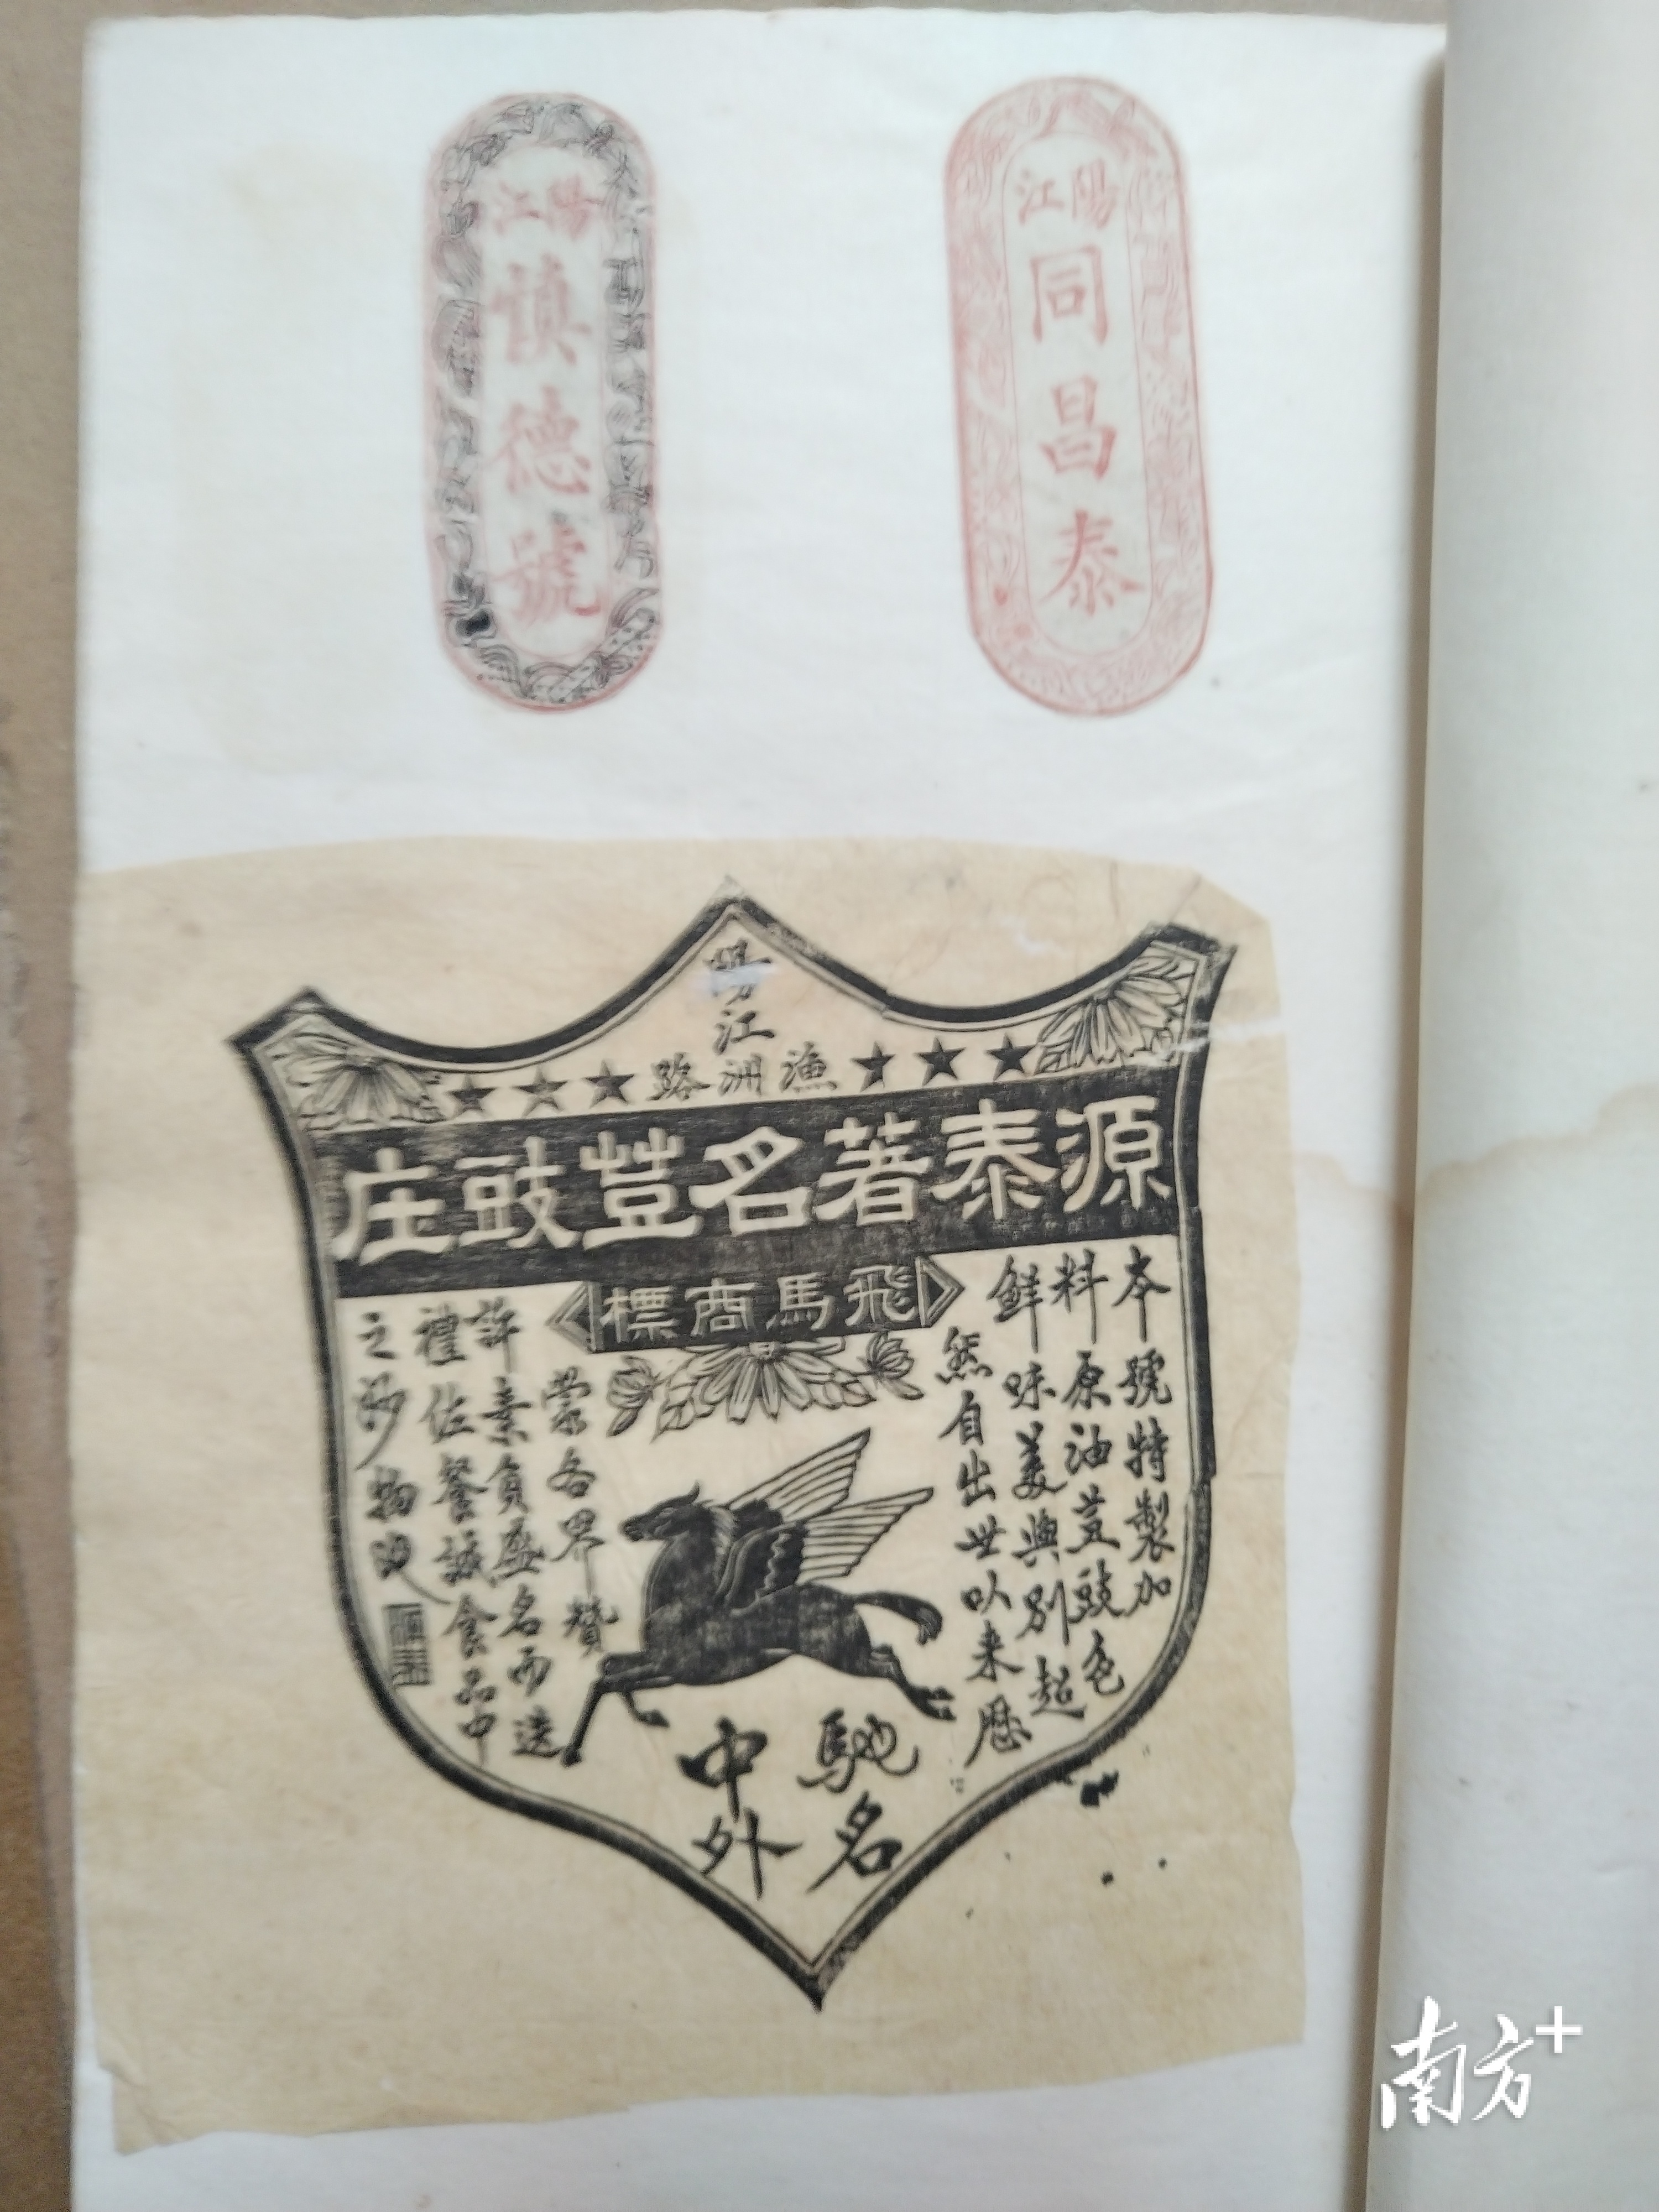 江陽
慎德號
江陽
同昌泰
陽江
漁洲路
源泰著名荳豉庄
飛馬商標
本號特製加
料原油荳豉色
鮮味美與別超
然自出世以来歷
蒙各界贊
許素負盛名而送
禮佐餐誠食品中
之妙物也
馳名
中外
南方+